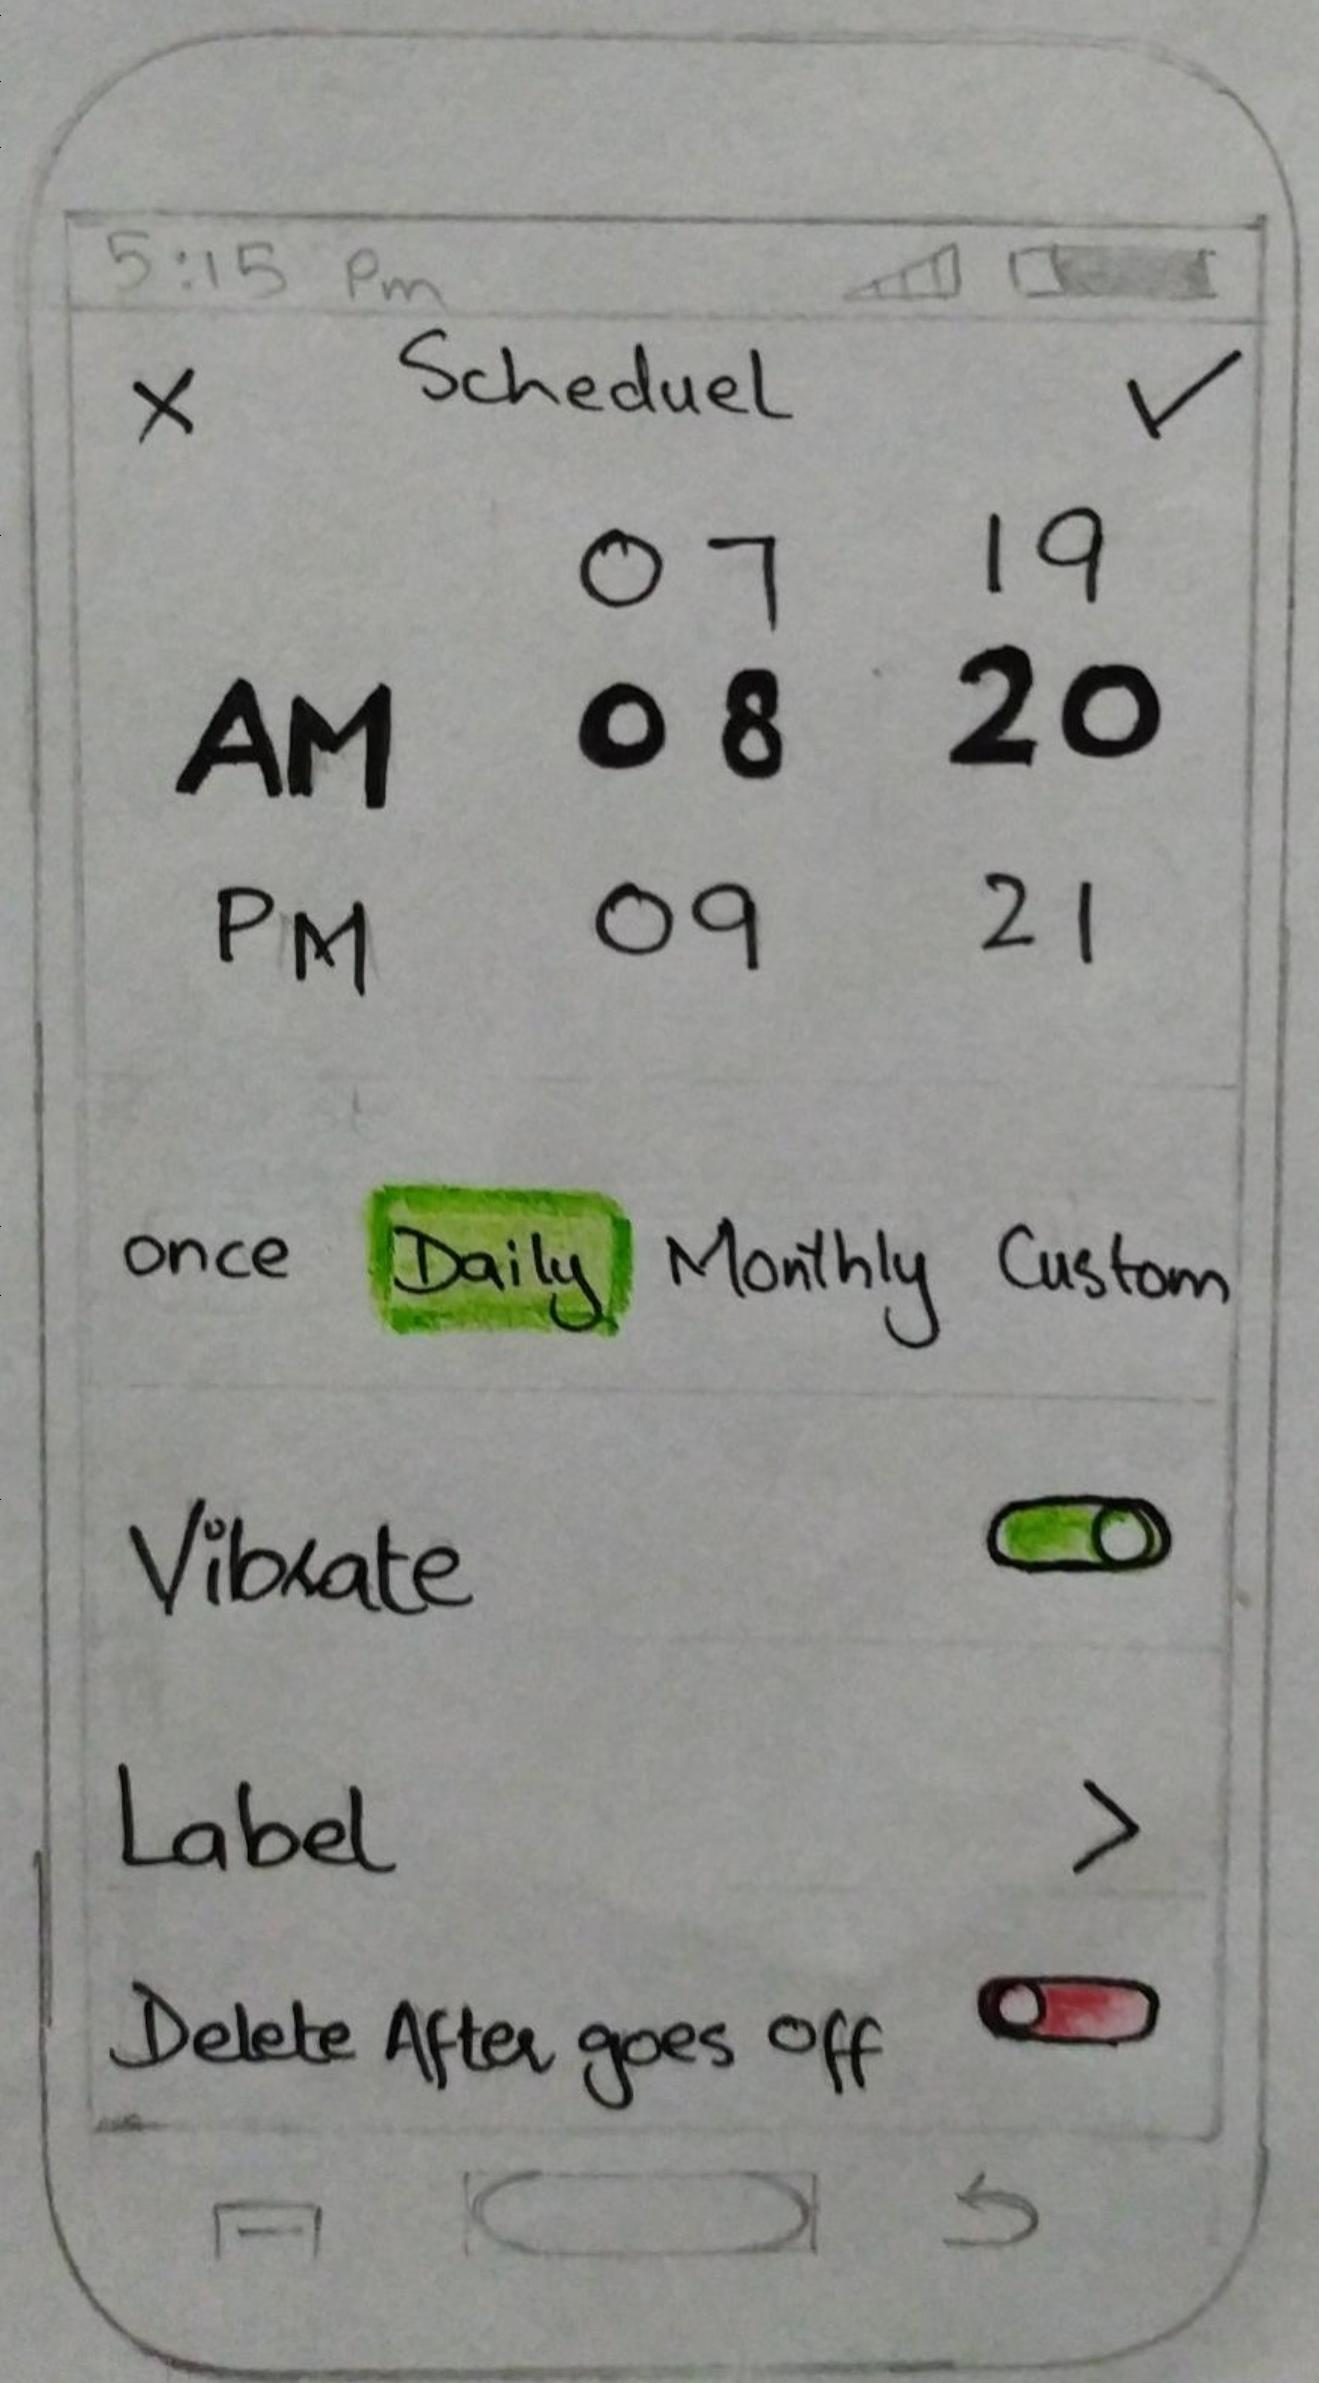 5:15 Pm
X Scheduel ✓
07 19
AM 08 20
PM 09 21
once Daily Monthly Custom
Vibrate
Label >
Delete After goes off